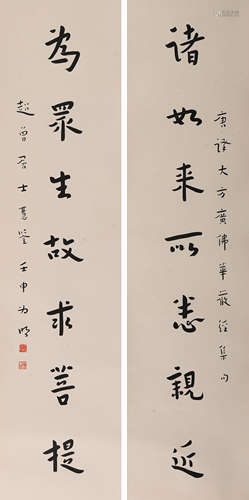 唐譯大方廣佛華嚴經集句
諸如來所悉親近
為眾生故求菩提
超曾居士慧鑒 壬申 為明